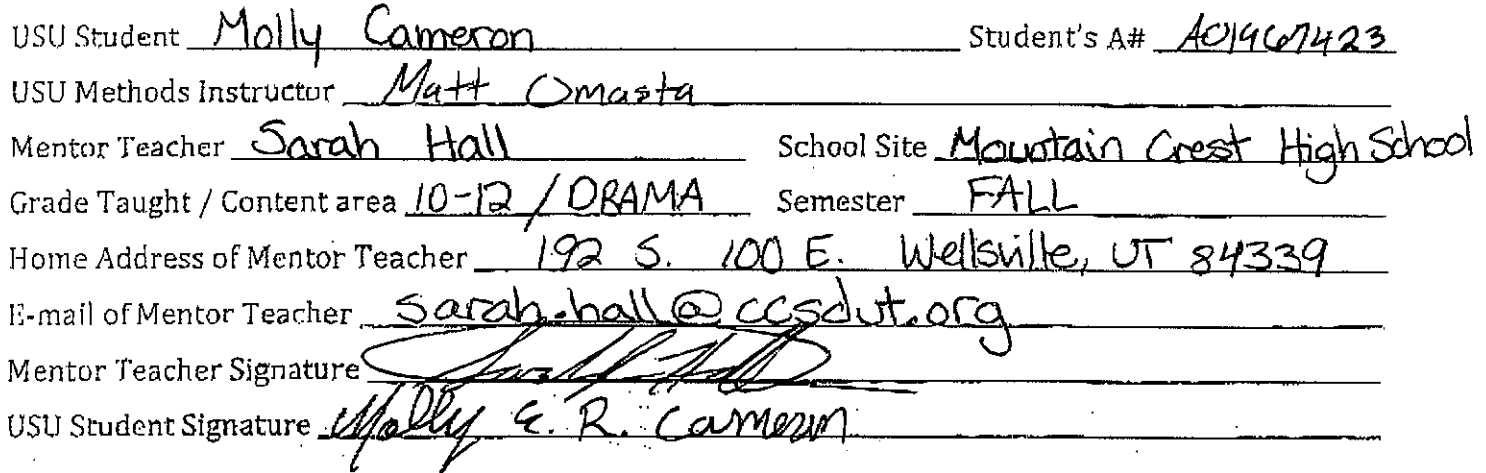 USU Student Molly Cameron Student's A# A01967423
USU Methods Instructor Matt Omasta
Mentor Teacher Sarah Hall School Site Mountain Crest High School
Grade Taught / Content area 10-12 / DRAMA Semester FALL
Home Address of Mentor Teacher 192 S. 100 E. Wellsville, UT 84339
E-mail of Mentor Teacher sarah.hall@ccsdut.org
Mentor Teacher Signature Sarah Hall
USU Student Signature Molly E. R. Cameron